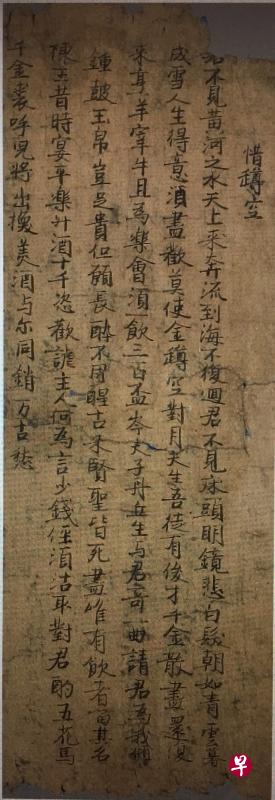 惜罇空
君不見黃河之水天上來奔流到海不復迴君不見床頭明鏡悲白髮朝如青雲暮
成雪人生得意須盡歡莫使金罇空對月天生吾徒有俊才千金散盡還復
來烹羊宰牛且為樂會須一飲三百盃岑夫子丹丘生与君哥一曲請君為我傾
鍾鼓玉帛豈足貴但願長醉不用醒古來賢聖皆死盡唯有飲者留其名
陳王昔時宴平樂斗酒十千恣歡謔主人何為言少錢徑須沽取對君酌五花馬
千金裘呼兒將出換美酒与尔同銷万古愁
早